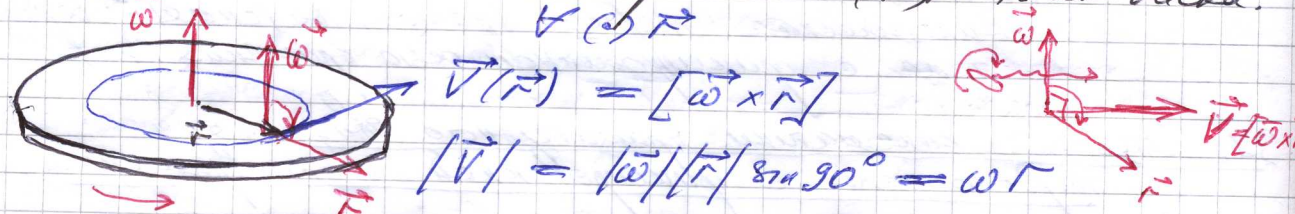 ω ω⃗ r⃗ r⃗
∀ (·) r⃗
V⃗(r⃗) = [ω⃗ × r⃗]
|V⃗| = |ω⃗||r⃗| sin 90° = ω r
ω⃗ V⃗ = [ω⃗ × r⃗